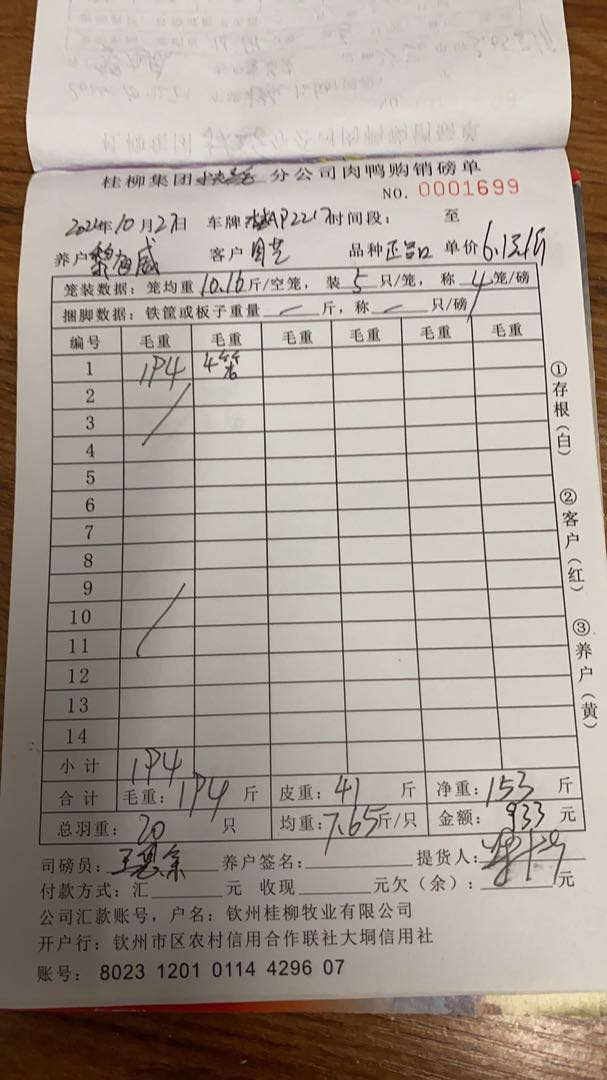 桂柳集团 分公司肉鸭购销磅单
NO. 0001699
2021年10月27日 车牌:桂AP2217 时间段: 至
养户 黎 威 客户 品种 正品 单价 6.1元/斤
笼装数据: 笼均重10.16斤/空笼, 装5只/笼, 称4笼/磅
捆脚数据: 铁筐或板子重量 — 斤, 称 — 只/磅
编号 毛重 毛重 毛重 毛重 毛重 毛重
1 194 4笼
2
3
4
5
6
7
8
9
10
11
12
13
14
小计 194
合计 毛重: 194 斤 皮重: 41 斤 净重: 153 斤
总羽重: 20 只 均重: 7.65斤/只 金额: 933 元
司磅员: 养户签名: 提货人:
付款方式: 汇 元 收现 元欠(余): 元
公司汇款账号, 户名: 钦州桂柳牧业有限公司
开户行: 钦州市区农村信用合作联社大垌信用社
账号: 8023 1201 0114 4296 07
①存根(白)
②客户(红)
③养户(黄)